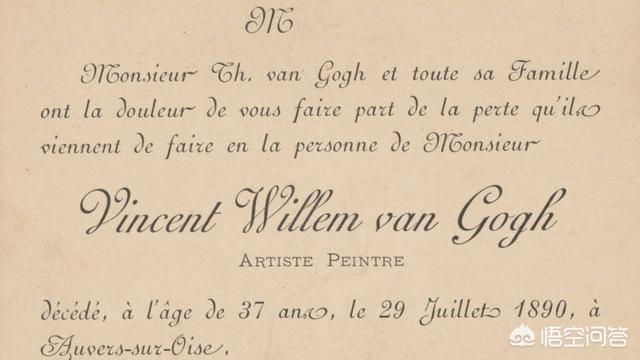 M
Monsieur Th. van Gogh et toute sa Famille
ont la douleur de vous faire part de la perte qu'ils
viennent de faire en la personne de Monsieur
Vincent Willem van Gogh
ARTISTE PEINTRE
décédé, à l'âge de 37 ans, le 29 Juillet 1890, à
Auvers-sur-Oise.
悟空问答